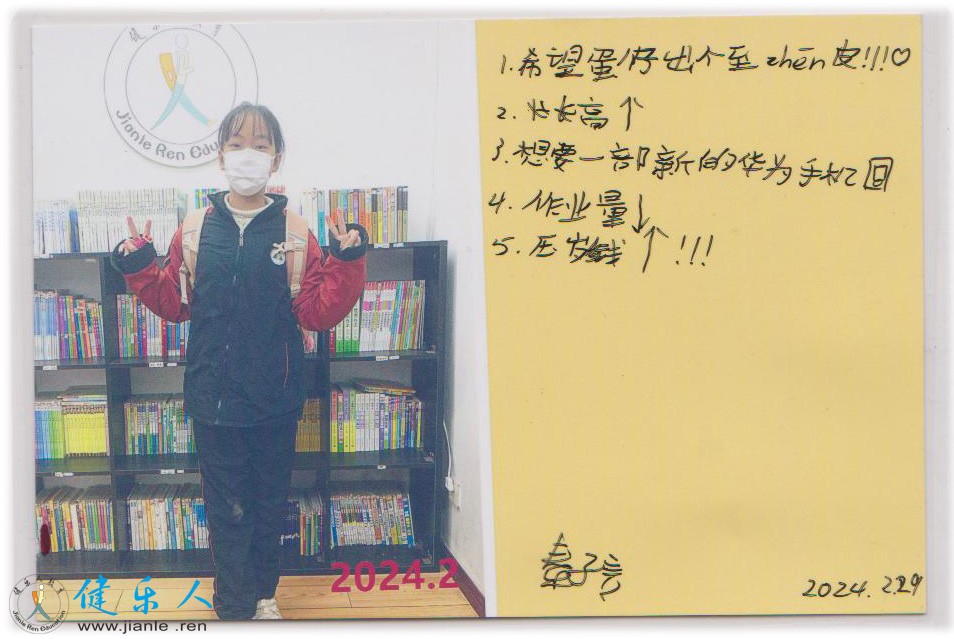 健 乐 人
Jianle Ren Education
1.希望蛋仔出个至zhēn皮!!!♡
2.长高↑
3.想要一部新的华为手机回
4.作业量↓
5.压岁钱↑!!!
2024.2.29
2024.2
健乐人
www.jianle .ren